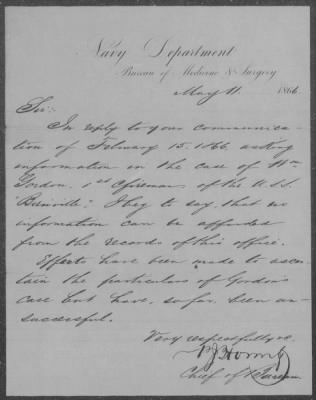 Navy Department
Bureau of Medicine & Surgery
May 11. 1866.
Sir:
In reply to your communica-
tion of February 15. 1866 asking
information in the case of Wm
Gordon, 1st C Fireman of the U.S.S.
"Bienville", I beg to say, that no
information can be afforded
from the records of this office.
Efforts have been made to ascer-
tain the particulars of Gordon's
case but have, so far, been un-
successful.
Very respectfully &c.
P J Horwitz
Chief of Bureau